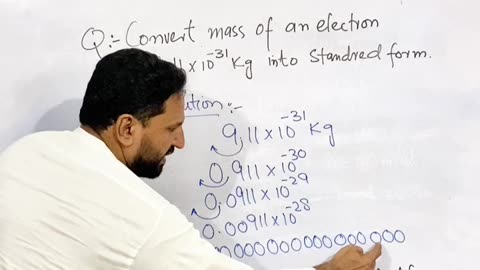 Q:- Convert mass of an electron
11 x 10⁻³¹ Kg into Standred form.
ution:-
9.11 x 10⁻³¹ Kg
0.911 x 10⁻³⁰
0.0911 x 10⁻²⁹
0.00911 x 10⁻²⁸